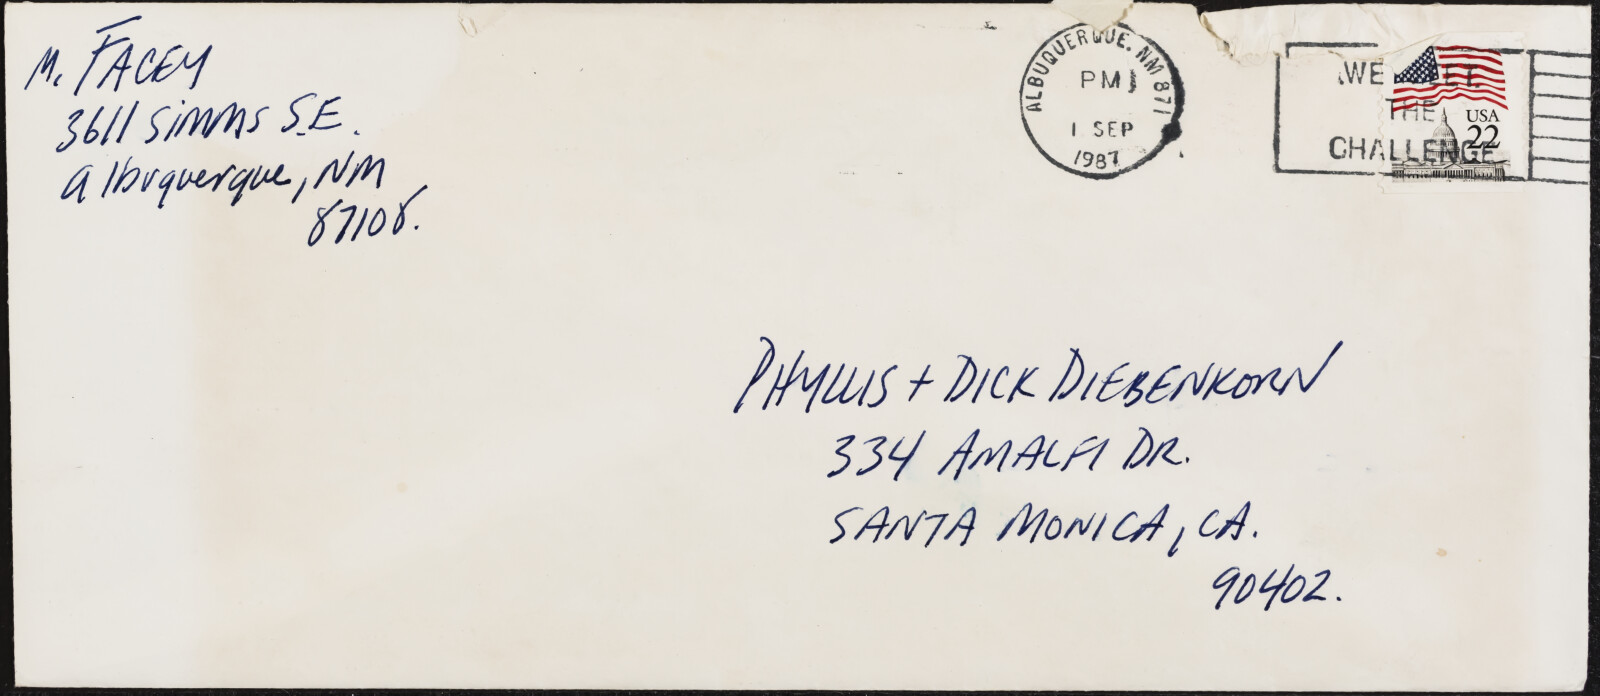 M. FACEY
3611 Simms S.E.
Albuquerque, NM
87108.
ALBUQUERQUE, NM 871
PM
1 SEP
1987
WE MEET
THE
CHALLENGE
USA
22
PHYLLIS + DICK DIEBENKORN
334 AMALFI DR.
SANTA MONICA, CA.
90402.